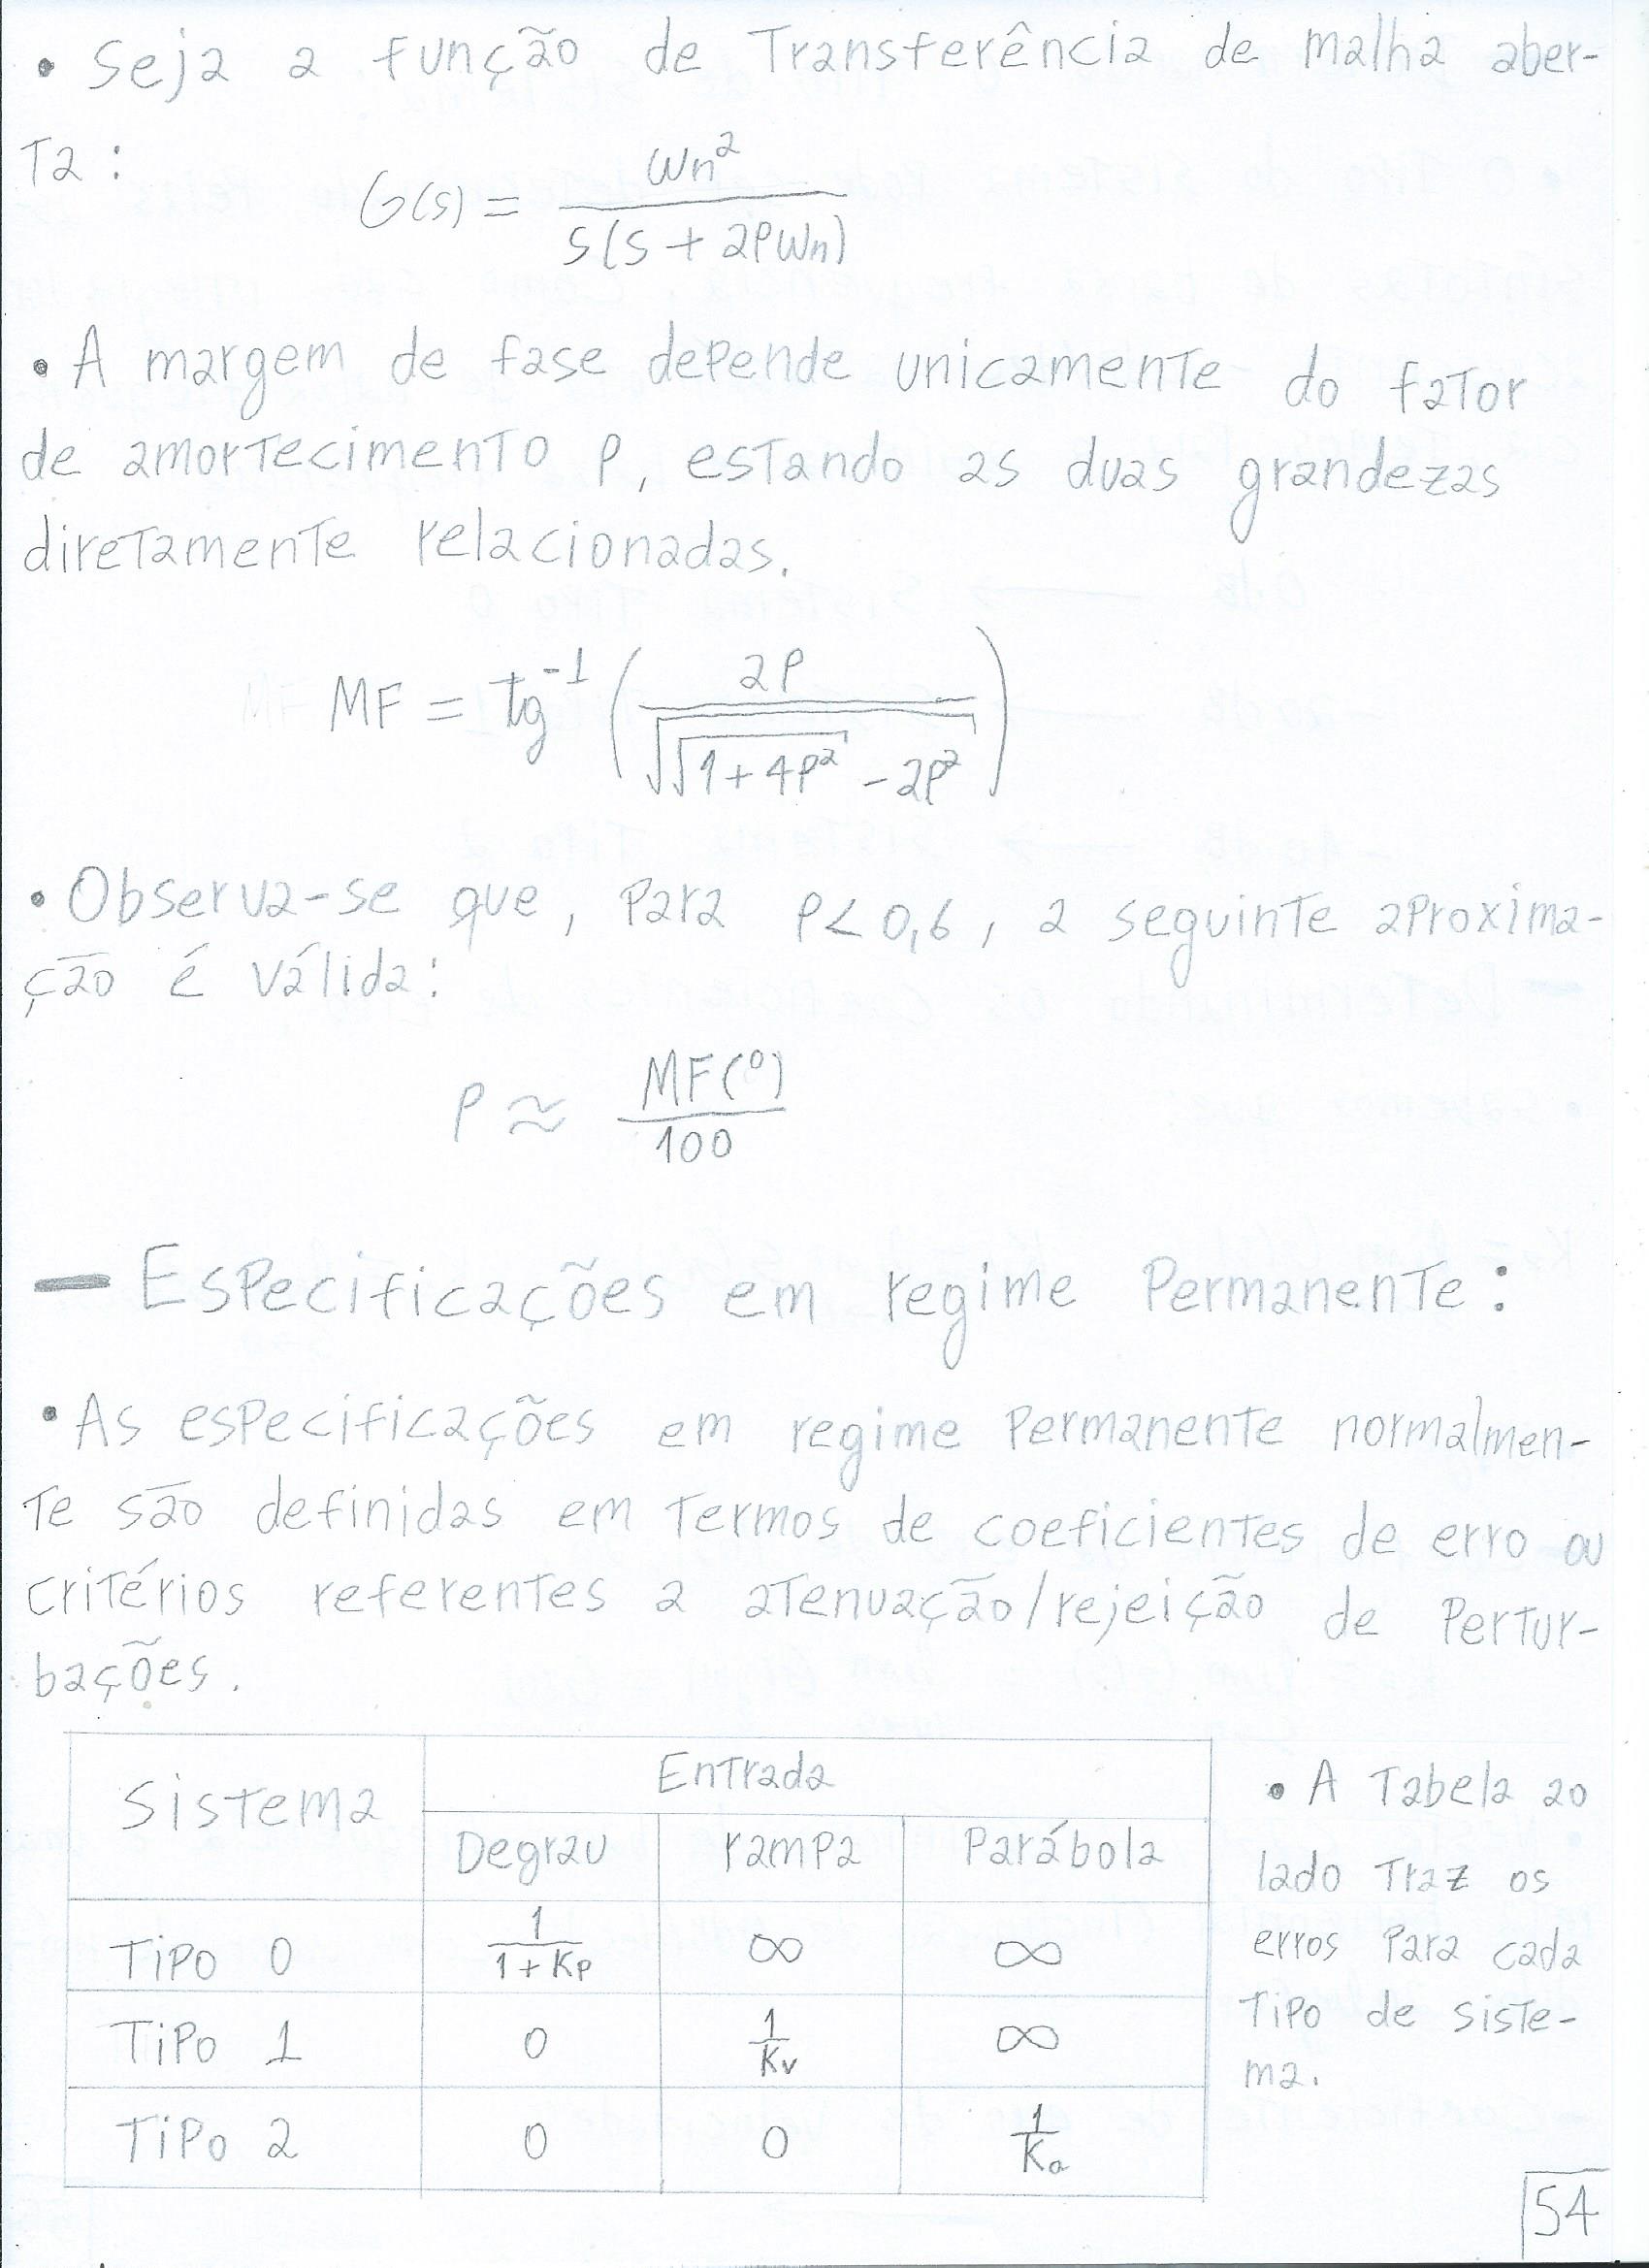 • Seja a função de Transferência de malha aber-
ta:
G(s) = Wn² / s(s + 2ρWn)
• A margem de fase depende unicamente do fator
de amortecimento ρ, estando as duas grandezas
diretamente relacionadas.
MF = tg⁻¹ (2ρ / √(√(1+4ρ²) - 2ρ²))
• Observa-se que, para ρ < 0,6, a seguinte aproxima-
ção é válida:
ρ ≈ MF(°) / 100
- Especificações em regime permanente:
• As especificações em regime permanente normalmen-
te são definidas em termos de coeficientes de erro ou
critérios referentes a atenuação/rejeição de pertur-
bações.
Sistema Entrada
Degrau rampa Parábola
Tipo 0 1/(1+Kp) ∞ ∞
Tipo 1 0 1/Kv ∞
Tipo 2 0 0 1/Ka
• A Tabela ao
lado traz os
erros para cada
tipo de siste-
ma.
54